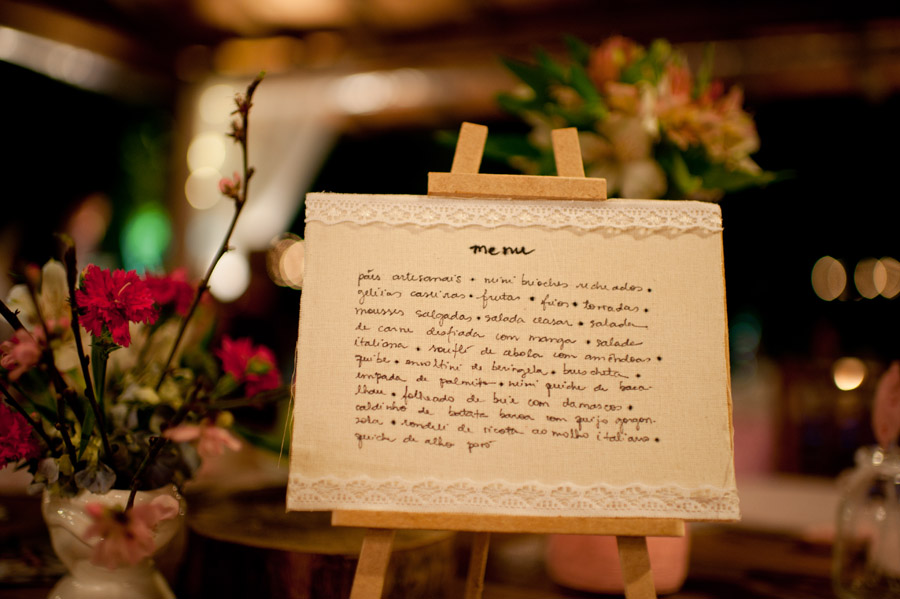 menu
pães artesanais • mini brioches recheados •
geleias caseiras • frutas • frios • torradas •
mousses salgadas • salada ceasar • salada
de carne desfiada com manga • salada
italiana • souflê de cebola com amêndoas •
quibe • involtini de beringela • bruscheta •
empada de palmito • mini quiche de baca-
lhau • folheado de brie com damasco •
caldinho de batata baroa com queijo gorgon-
zola • rondeli de ricotta ao molho italiano •
quiche de alho poró